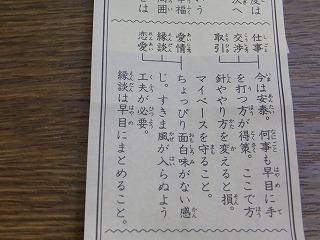 度は
次へ
う
幸福
周囲
は
仕事
交渉
取引
今は安泰。何事も早目に手
を打つ方が得策。ここで方
針ややり方を変えると損。
マイペースを守ること。
愛情
縁談
恋愛
ちょっぴり面白味がない感
じ。すきま風が入らぬよう
工夫が必要。
縁談は早目にまとめること。